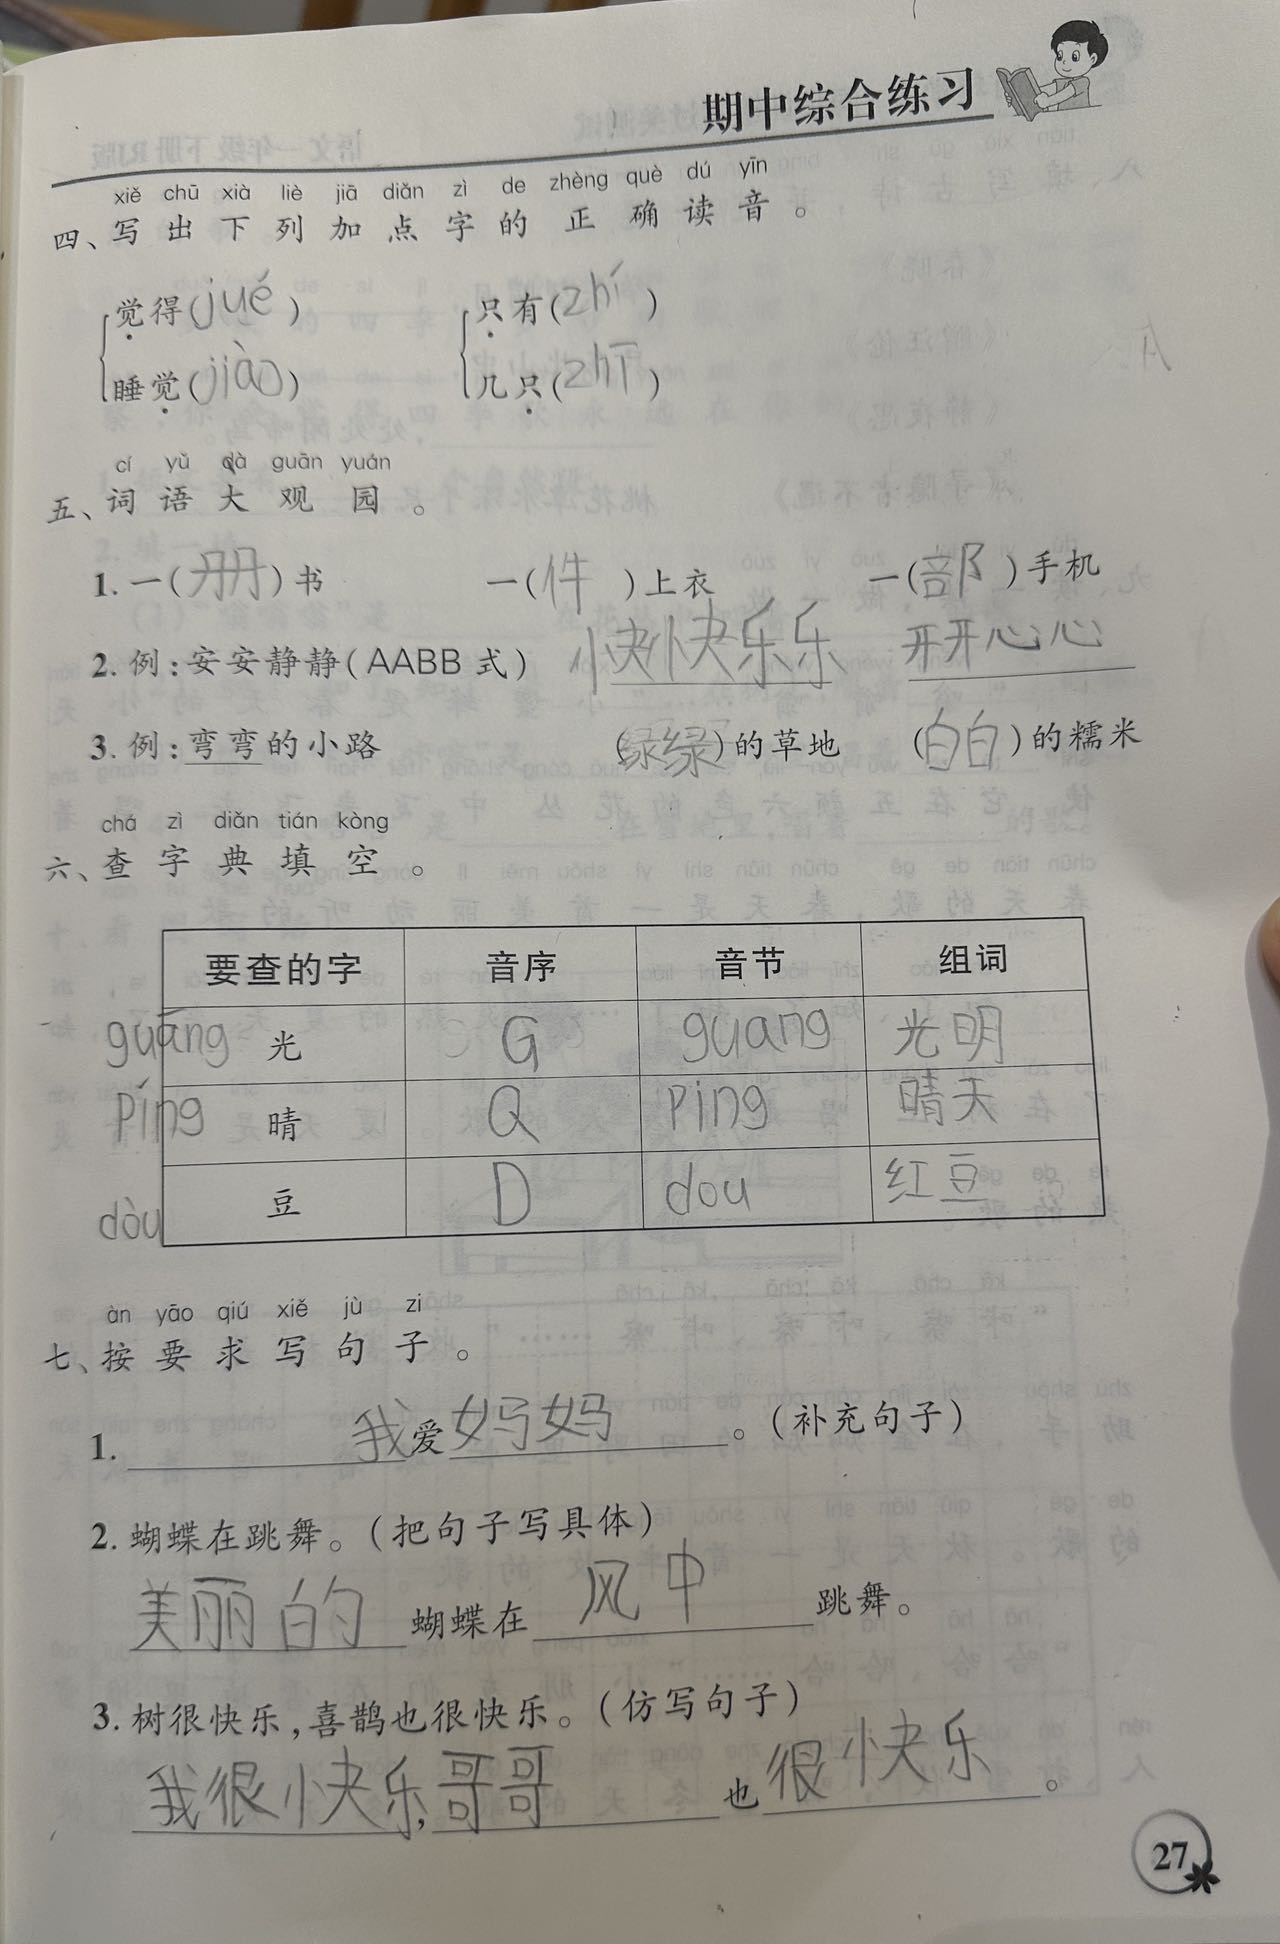 期中综合练习
xiě chū xià liè jiā diǎn zì de zhèng què dú yīn
四、写出下列加点字的正确读音。
觉得(jué) 只有(zhí)
睡觉(jiào) 几只(zhī)
cí yǔ dà guān yuán
五、词语大观园。
1. 一(册)书 一(件)上衣 一(部)手机
2. 例:安安静静(AABB 式) 快快乐乐 开开心心
3. 例:弯弯的小路 (绿绿)的草地 (白白)的糯米
chá zì diǎn tián kòng
六、查字典填空。
要查的字 音序 音节 组词
guāng 光 G guang 光明
píng 晴 Q ping 晴天
dòu 豆 D dou 红豆
àn yāo qiú xiě jù zi
七、按要求写句子。
1. 我爱妈妈。(补充句子)
2. 蝴蝶在跳舞。(把句子写具体)
美丽的蝴蝶在风中跳舞。
3. 树很快乐,喜鹊也很快乐。(仿写句子)
我很快乐,哥哥也很快乐。
27